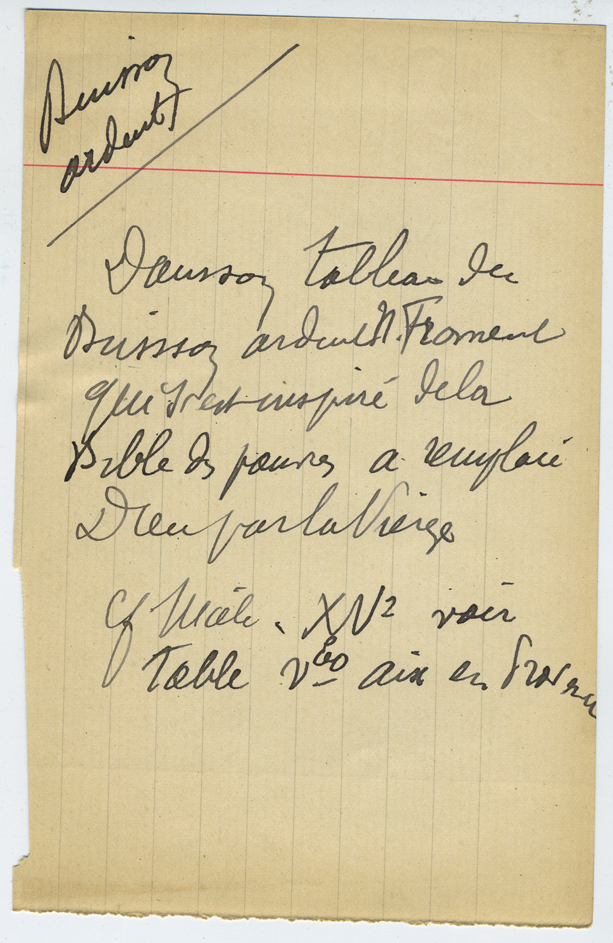 Buisson
ardent
Dans son tableau du
Buisson ardent N. Froment
qui s'est inspiré de la
Bible des pauvres a remplacé
Dieu par la Vierge
Cf Mâle. XVe voir
table v° aix en Provence